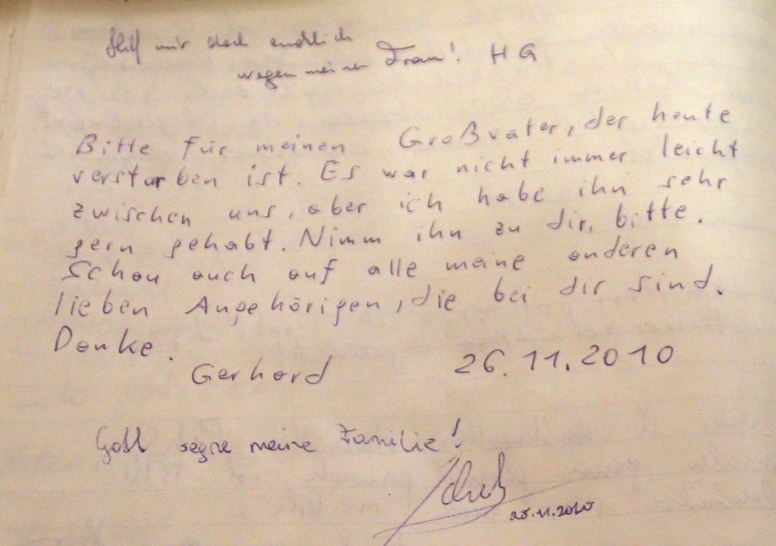 Hilf mir doch endlich
wegen meiner Frau! HG
Bitte für meinen Großvater, der heute
verstorben ist. Es war nicht immer leicht
zwischen uns, aber ich habe ihn sehr
gern gehabt. Nimm ihn zu dir, bitte.
Schau auch auf alle meine anderen
lieben Angehörigen, die bei dir sind.
Danke.
Gerhard 26.11.2010
Gott segne meine Familie!
28.11.2010